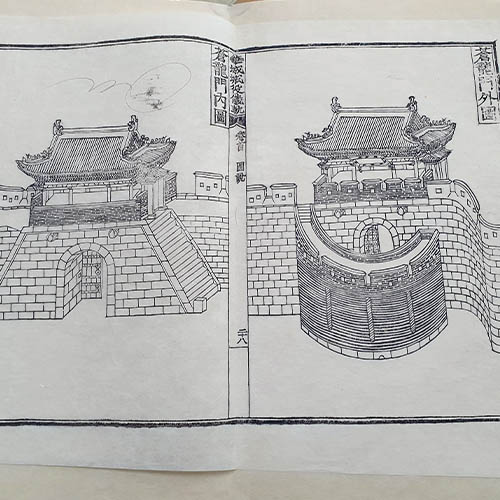 蒼龍門外圖
華城城役儀軌
卷首
圖說
二十八
蒼龍門內圖